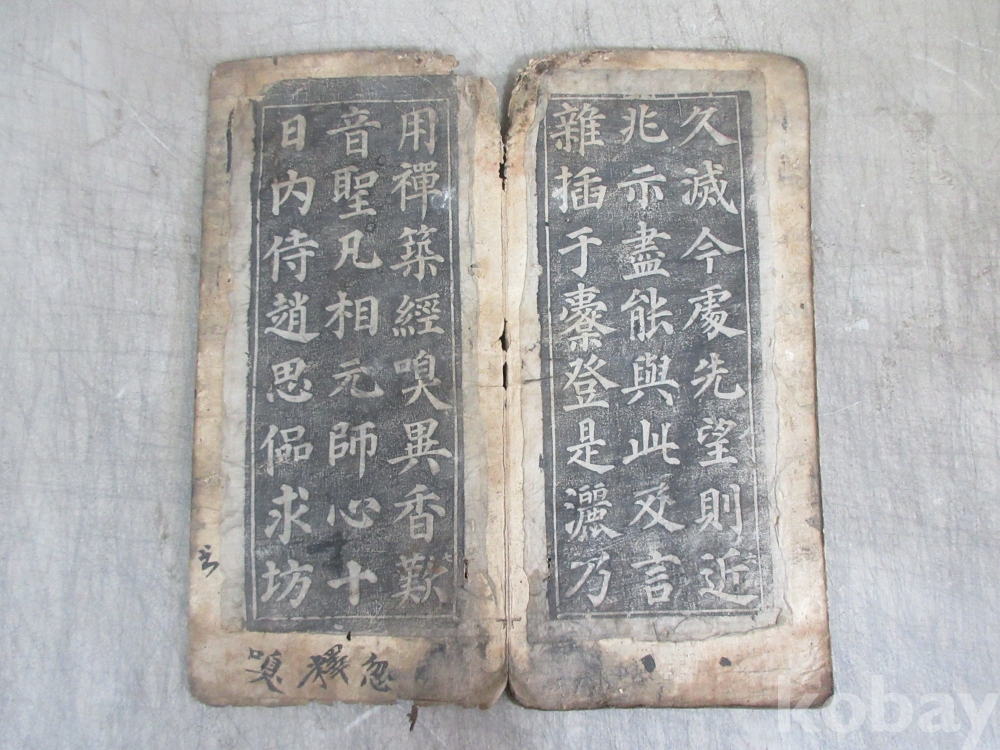 久滅今處先望則近
兆示盡能與此交言
雜插于橐登是灑乃
用禪築經嗅異香歎
音聖凡相元師心十
日內侍趙思偘求坊
嗅 釋 忽
kobay